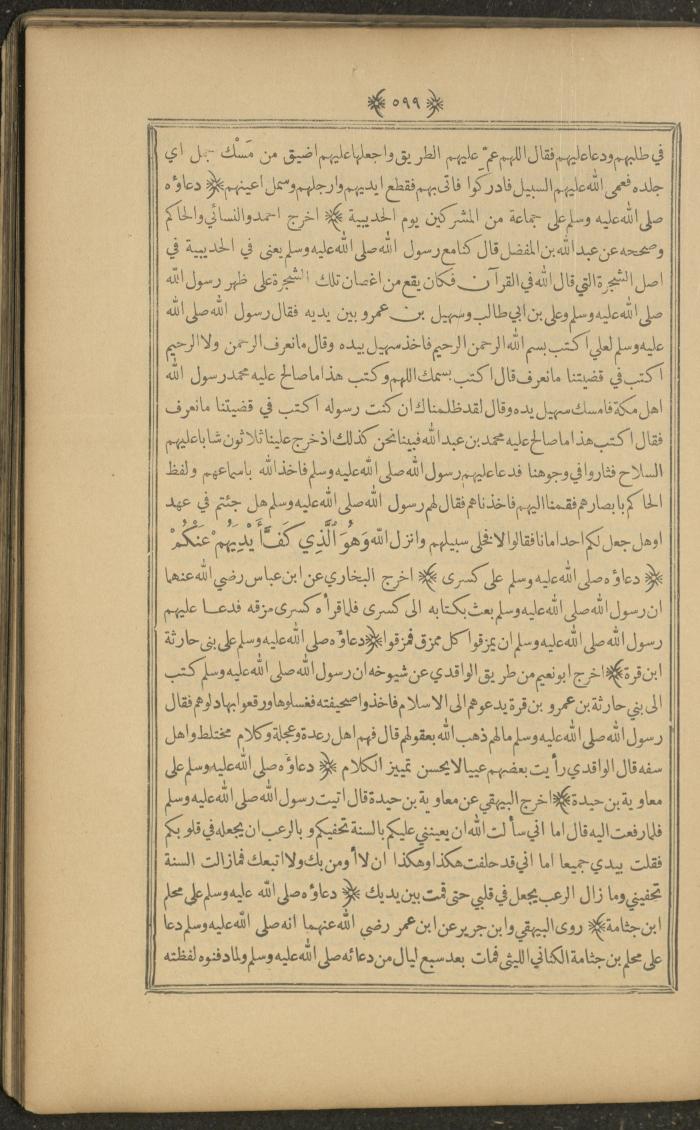 ﴿ ٥٩٩ ﴾
في طلبهم ودعا عليهم فقال اللهم عمّ عليهم الطريق واجعلها عليهم اضيق من مَسْك جمل اي
جلده فعمى الله عليهم السبيل فادركوا فاتى بهم فقطع ايديهم وارجلهم وسمل اعينهم ﴿ دعاؤه
صلى الله عليه وسلم على جماعة من المشركين يوم الحديبية ﴾ اخرج احمد والنسائي والحاكم
وصححه عن عبد الله بن المفضل قال كنا مع رسول الله صلى الله عليه وسلم يعنى في الحديبية في
اصل الشجرة التي قال الله في القرآن فكان يقع من اغصان تلك الشجرة على ظهر رسول الله
صلى الله عليه وسلم وعلى بن ابي طالب وسهيل بن عمرو بين يديه فقال رسول الله صلى الله
عليه وسلم لعلي اكتب بسم الله الرحمن الرحيم فاخذ سهيل بيده وقال ما نعرف الرحمن ولا الرحيم
اكتب في قضيتنا ما نعرف قال اكتب بسمك اللهم وكتب هذا ما صالح عليه محمد رسول الله
اهل مكة فامسك سهيل يده وقال لقد ظلمناك ان كنت رسوله اكتب في قضيتنا ما نعرف
فقال اكتب هذا ما صالح عليه محمد بن عبد الله فبينا نحن كذلك اذ خرج علينا ثلاثون شابا عليهم
السلاح فثاروا في وجوهنا فدعا عليهم رسول الله صلى الله عليه وسلم فاخذ الله باسماعهم ولفظ
الحاكم بابصارهم فقمنا اليهم فاخذناهم فقال لهم رسول الله صلى الله عليه وسلم هل جئتم في عهد
او هل جعل لكم احد امانا فقالوا لا فخلى سبيلهم وانزل الله وَهُوَ ٱلَّذِي كَفَّ أَيْدِيَهُمْ عَنْكُمْ
﴿ دعاؤه صلى الله عليه وسلم على كسرى ﴾ اخرج البخاري عن ابن عباس رضي الله عنهما
ان رسول الله صلى الله عليه وسلم بعث بكتابه الى كسرى فلما قرأه كسرى مزقه فدعا عليهم
رسول الله صلى الله عليه وسلم ان يمزقوا كل ممزق فمزقوا ﴿ دعاؤه صلى الله عليه وسلم على بنى حارثة
ابن قرة ﴾ اخرج ابو نعيم من طريق الواقدي عن شيوخه ان رسول الله صلى الله عليه وسلم كتب
الى بني حارثة بن عمرو بن قرة يدعوهم الى الاسلام فاخذوا صحيفته فغسلوها ورقعوا بها دلوهم فقال
رسول الله صلى الله عليه وسلم مالهم ذهب الله بعقولهم قال فهم اهل رعدة وعجلة وكلام مختلط واهل
سفه قال الواقدي رأيت بعضهم عييا لا يحسن تمييز الكلام ﴿ دعاؤه صلى الله عليه وسلم على
معاوية بن حيدة ﴾ اخرج البيهقي عن معاوية بن حيدة قال اتيت رسول الله صلى الله عليه وسلم
فلما رفعت اليه قال اما اني سألت الله ان يعينني عليكم بالسنة تحفيكم و بالرعب ان يجعله في قلوبكم
فقلت بيدي جميعا اما اني قد حلفت هكذا وهكذا ان لا أومن بك ولا اتبعك فما زالت السنة
تحفيني وما زال الرعب يجعل في قلبي حتى قمت بين يديك ﴿ دعاؤه صلى الله عليه وسلم على محلم
ابن جثامة ﴾ روى البيهقي وابن جرير عن ابن عمر رضي الله عنهما انه صلى الله عليه وسلم دعا
على محلم بن جثامة الكناني الليثى فمات بعد سبع ليال من دعائه صلى الله عليه وسلم ولما دفنوه لفظته